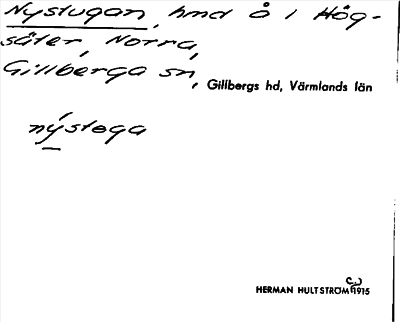 Nystugan, hmd å i Hög-
säter, Norra,
Gillberga sn, Gillbergs hd, Värmlands län
nýstoga
HERMAN HULTSTRÖM 1915